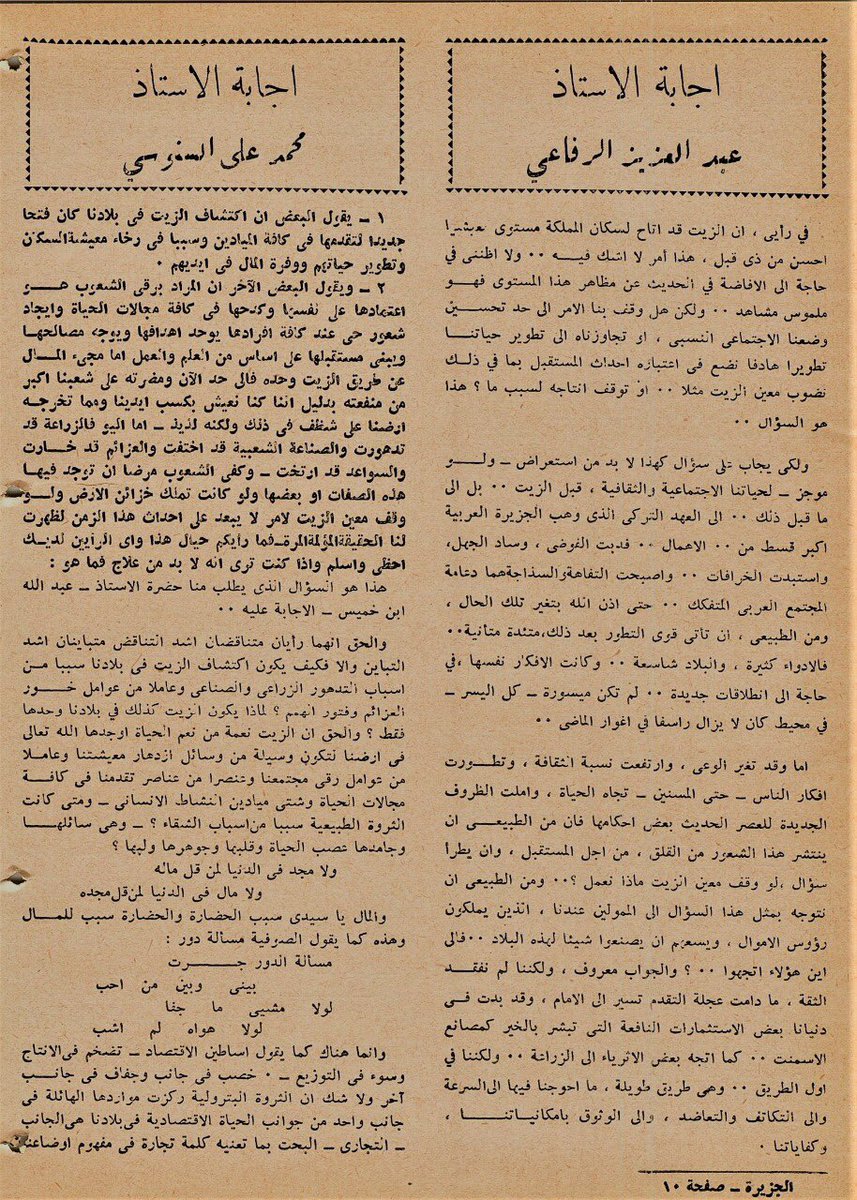 اجابة الاستاذ
عبد العزيز الرفاعي
في رأيى ، ان الزيت قد اتاح لسكان المملكة مستوى معيشيا
احسن من ذى قبل ، هذا أمر لا اشك فيــه ٠٠ ولا اظننى في
حاجة الى الافاضة في الحديث عن مظاهر هذا المستوى فهــو
ملموس مشاهد ٠٠ ولكن هل وقف بنا الامر الى حد تحســين
وضعنا الاجتماعى النسبى ، او تجاوزناه الى تطوير حياتنــا
تطويرا هادفا نضع فى اعتباره احداث المستقبل بما في ذلــك
نضوب معين الزيت مثلا ٠٠ او توقف انتاجه لسبب ما ؟ هذا
هو السؤال ٠٠
ولكى يجاب على سؤال كهذا لا بد من استعراض ــ ولــو
موجز ــ لحياتنا الاجتماعية والثقافية ، قبل الزيت ٠٠ بل الى
ما قبل ذلك ٠٠ الى العهد التركى الذى وهب الجزيرة العربية
اكبر قسط من ٠٠ الاعمال ٠٠ فدبت الفوضى ، وساد الجهل،
واستبدت الخرافات ٠٠ واصبحت التفاهة والسذاجة هما دعامة
المجتمع العربى المتفكك ٠٠ حتى اذن الله بتغير تلك الحال ،
ومن الطبيعى ، ان تأتى قوى التطور بعد ذلك، متئدة متأنية٠٠
فالادواء كثيرة ، والبلاد شاسعة ٠٠ وكانت الافكار نفسها ،في
حاجة الى انطلاقات جديدة ٠٠ لم تكن ميسورة ــ كل اليسر ــ
في محيط كان لا يزال راسفا في اغوار الماضى ٠٠
اما وقد تغير الوعى ، وارتفعت نسبة الثقافة ، وتطــورت
افكار الناس ــ حتى المسنين ــ تجاه الحياة ، واملت الظروف
الجديدة للعصر الحديث بعض احكامها فان من الطبيعــى ان
ينتشر هذا الشعور من القلق ، من اجل المستقبل ، وان يطرأ
سؤال ،لو وقف معين الزيت ماذا نعمل ؟٠٠ ومن الطبيعى ان
نتوجه بمثل هذا السؤال الى الممولين عندنا ، الذين يملكون
رؤوس الاموال ، ويسعهم ان يصنعوا شيئا لهذه البلاد ٠٠فالى
اين هؤلاء اتجهوا ٠٠ ؟ والجواب معروف ، ولكننا لم نفقــد
الثقة ، ما دامت عجلة التقدم تسير الى الامام ، وقد بدت فــى
دنيانا بعض الاستثمارات النافعة التى تبشر بالخير كمصانع
الاسمنت ٠٠ كما اتجه بعض الاثرياء الى الزراعة ٠٠ ولكننا في
اول الطريق ٠٠ وهى طريق طويلة ، ما احوجنا فيها الى السرعة
والى التكاتف والتعاضد ، والى الوثوق بامكانياتنــا ،
وكفاياتنا ٠
الجزيرة ــ صفحة ١٠
اجابة الاستاذ
محمد على السنوسي
١ ــ يقول البعض ان اكتشاف الزيت فى بلادنا كان فتحا
جديدا لتقدمها فى كافة الميادين وسببا فى رخاء معيشة السكان
وتطوير حياتهم ووفرة المال فى ايديهم ٠
٢ ــ ويقول البعض الآخر ان المراد برقى الشعوب هــو
اعتمادها على نفسها وكدحها فى كافة مجالات الحياة وايجاد
شعور حى عند كافة افرادها يوحد اهدافها ويوجه مصالحهــا
ويبنى مستقبلها على اساس من العلم والعمل اما مجىء المــال
عن طريق الزيت وحده فالى حد الآن ومضرته على شعبنا اكبر
من منفعته بدليل اننا كنا نعيش بكسب ايدينا ومما تخرجــه
ارضنا على شظف فى ذلك ولكنه لذيذ ــ اما اليو فالزراعة قد
تدهورت والصناعة الشعبية قد اختفت والعزائم قد خــارت
والسواعد قد ارتخت ــ وكفى الشعوب مرضا ان توجد فيهــا
هذه الصفات او بعضها ولو كانت تملك خزائن الارض ولــو
وقف معين الزيت لامر لا يبعد على احداث هذا الزمن لظهرت
لنا الحقيقة المؤلمة المرة ــ فما رأيكم حيال هذا واى الرأيين لديــك
احظى واسلم واذا كنت ترى انه لا بد من علاج فما هو :
هذا هو السؤال الذى يطلب منا حضرة الاستاذ ــ عبد الله
ابن خميس ــ الاجابة عليه ٠٠
والحق انهما رأيان متناقضان اشد التناقض متباينان اشد
التباين والا فكيف يكون اكتشاف الزيت فى بلادنا سببا مــن
اسباب التدهور الزراعى والصناعى وعاملا من عوامل خــور
العزائم وفتور الهمم ؟ لماذا يكون الزيت كذلك فى بلادنا وحدها
فقط ؟ والحق ان الزيت نعمة من نعم الحياة اوجدها الله تعالى
فى ارضنا لتكون وسيلة من وسائل ازدهار معيشتنا وعامــلا
من عوامل رقى مجتمعنا وعنصرا من عناصر تقدمنا فى كافــة
مجالات الحياة وشتى ميادين النشاط الانسانى ــ ومتى كانت
الثروة الطبيعية سببا من اسباب الشقاء ؟ ــ وهى سائلهــا
وجامدها عصب الحياة وقلبها وجوهرها ولبها ؟
ولا مجد فى الدنيا لمن قل ماله
ولا مال فى الدنيا لمن قل مجده
والمال يا سيدى سبب الحضارة والحضارة سبب للمــال
وهذه كما يقول الصوفية مسألة دور :
مسألة الدور جــــرت
بينى وبين من احب
لولا مشيبى ما جفا
لولا هواه لم اشب
وانما هناك كما يقول اساطين الاقتصاد ــ تضخم فى الانتاج
وسوء فى التوزيع ــ ٠ خصب فى جانب وجفاف فى جانــب
آخر ولا شك ان الثروة البترولية ركزت مواردها الهائلة فى
جانب واحد من جوانب الحياة الاقتصادية فى بلادنا هى الجانب
ــ التجارى ــ البحت بما تعنيه كلمة تجارة فى مفهوم اوضاعنا